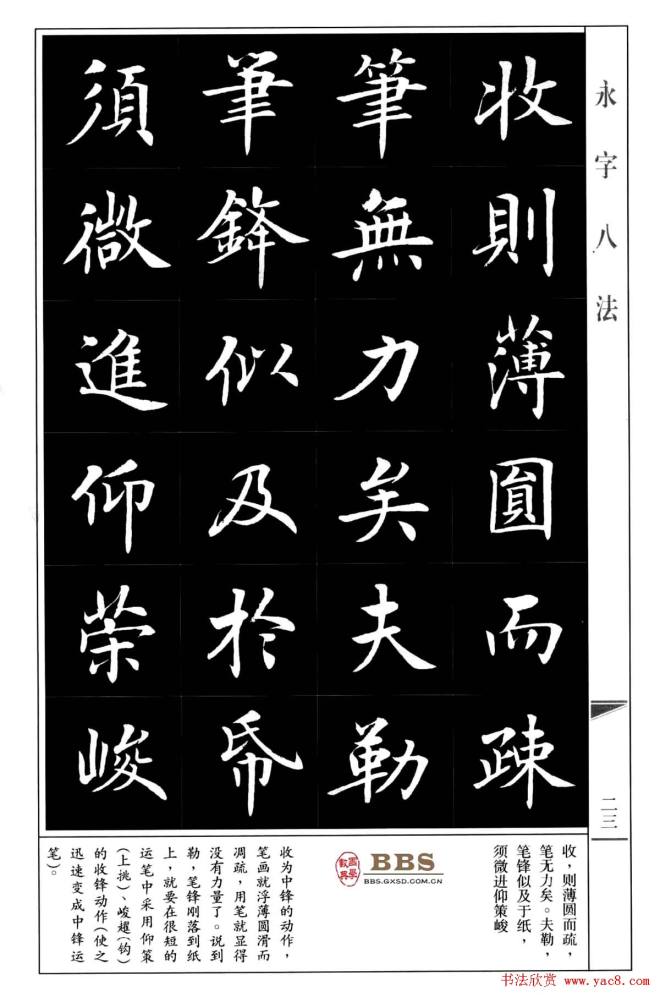 永字八法
收則薄圓而疎
筆無力矣夫勒
筆鋒似及於帋
須微進仰策峻
二三
收，则薄圆而疏，
笔无力矣。夫勒，
笔锋似及于纸，
须微进仰策峻
BBS
BBS.GXSD.COM.CN
收为中锋的动作，
笔画就浮薄圆滑而
凋疏，用笔就显得
没有力量了。说到
勒，笔锋刚落到纸
上，就要在很短的
运笔中采用仰策
（上挑）、峻趯（钩）
的收锋动作（使之
迅速变成中锋运
笔）。
书法欣赏 www.yac8.com